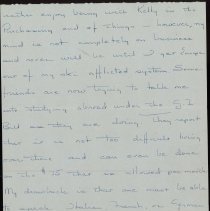 neither enjoy being with Kelly in the
Purchasing end of things - however, my
mind is not completely on business
and never will be until I get
out of my ski afflicted system. Some
friends are now trying to talk me
into studying abroad under the G.I.
Bill as they are doing. They report
that is not too difficult living
over there and can even be done
on the $75 that is allowed per month.
My drawback is that one must be able
to speak Italian, French, or German